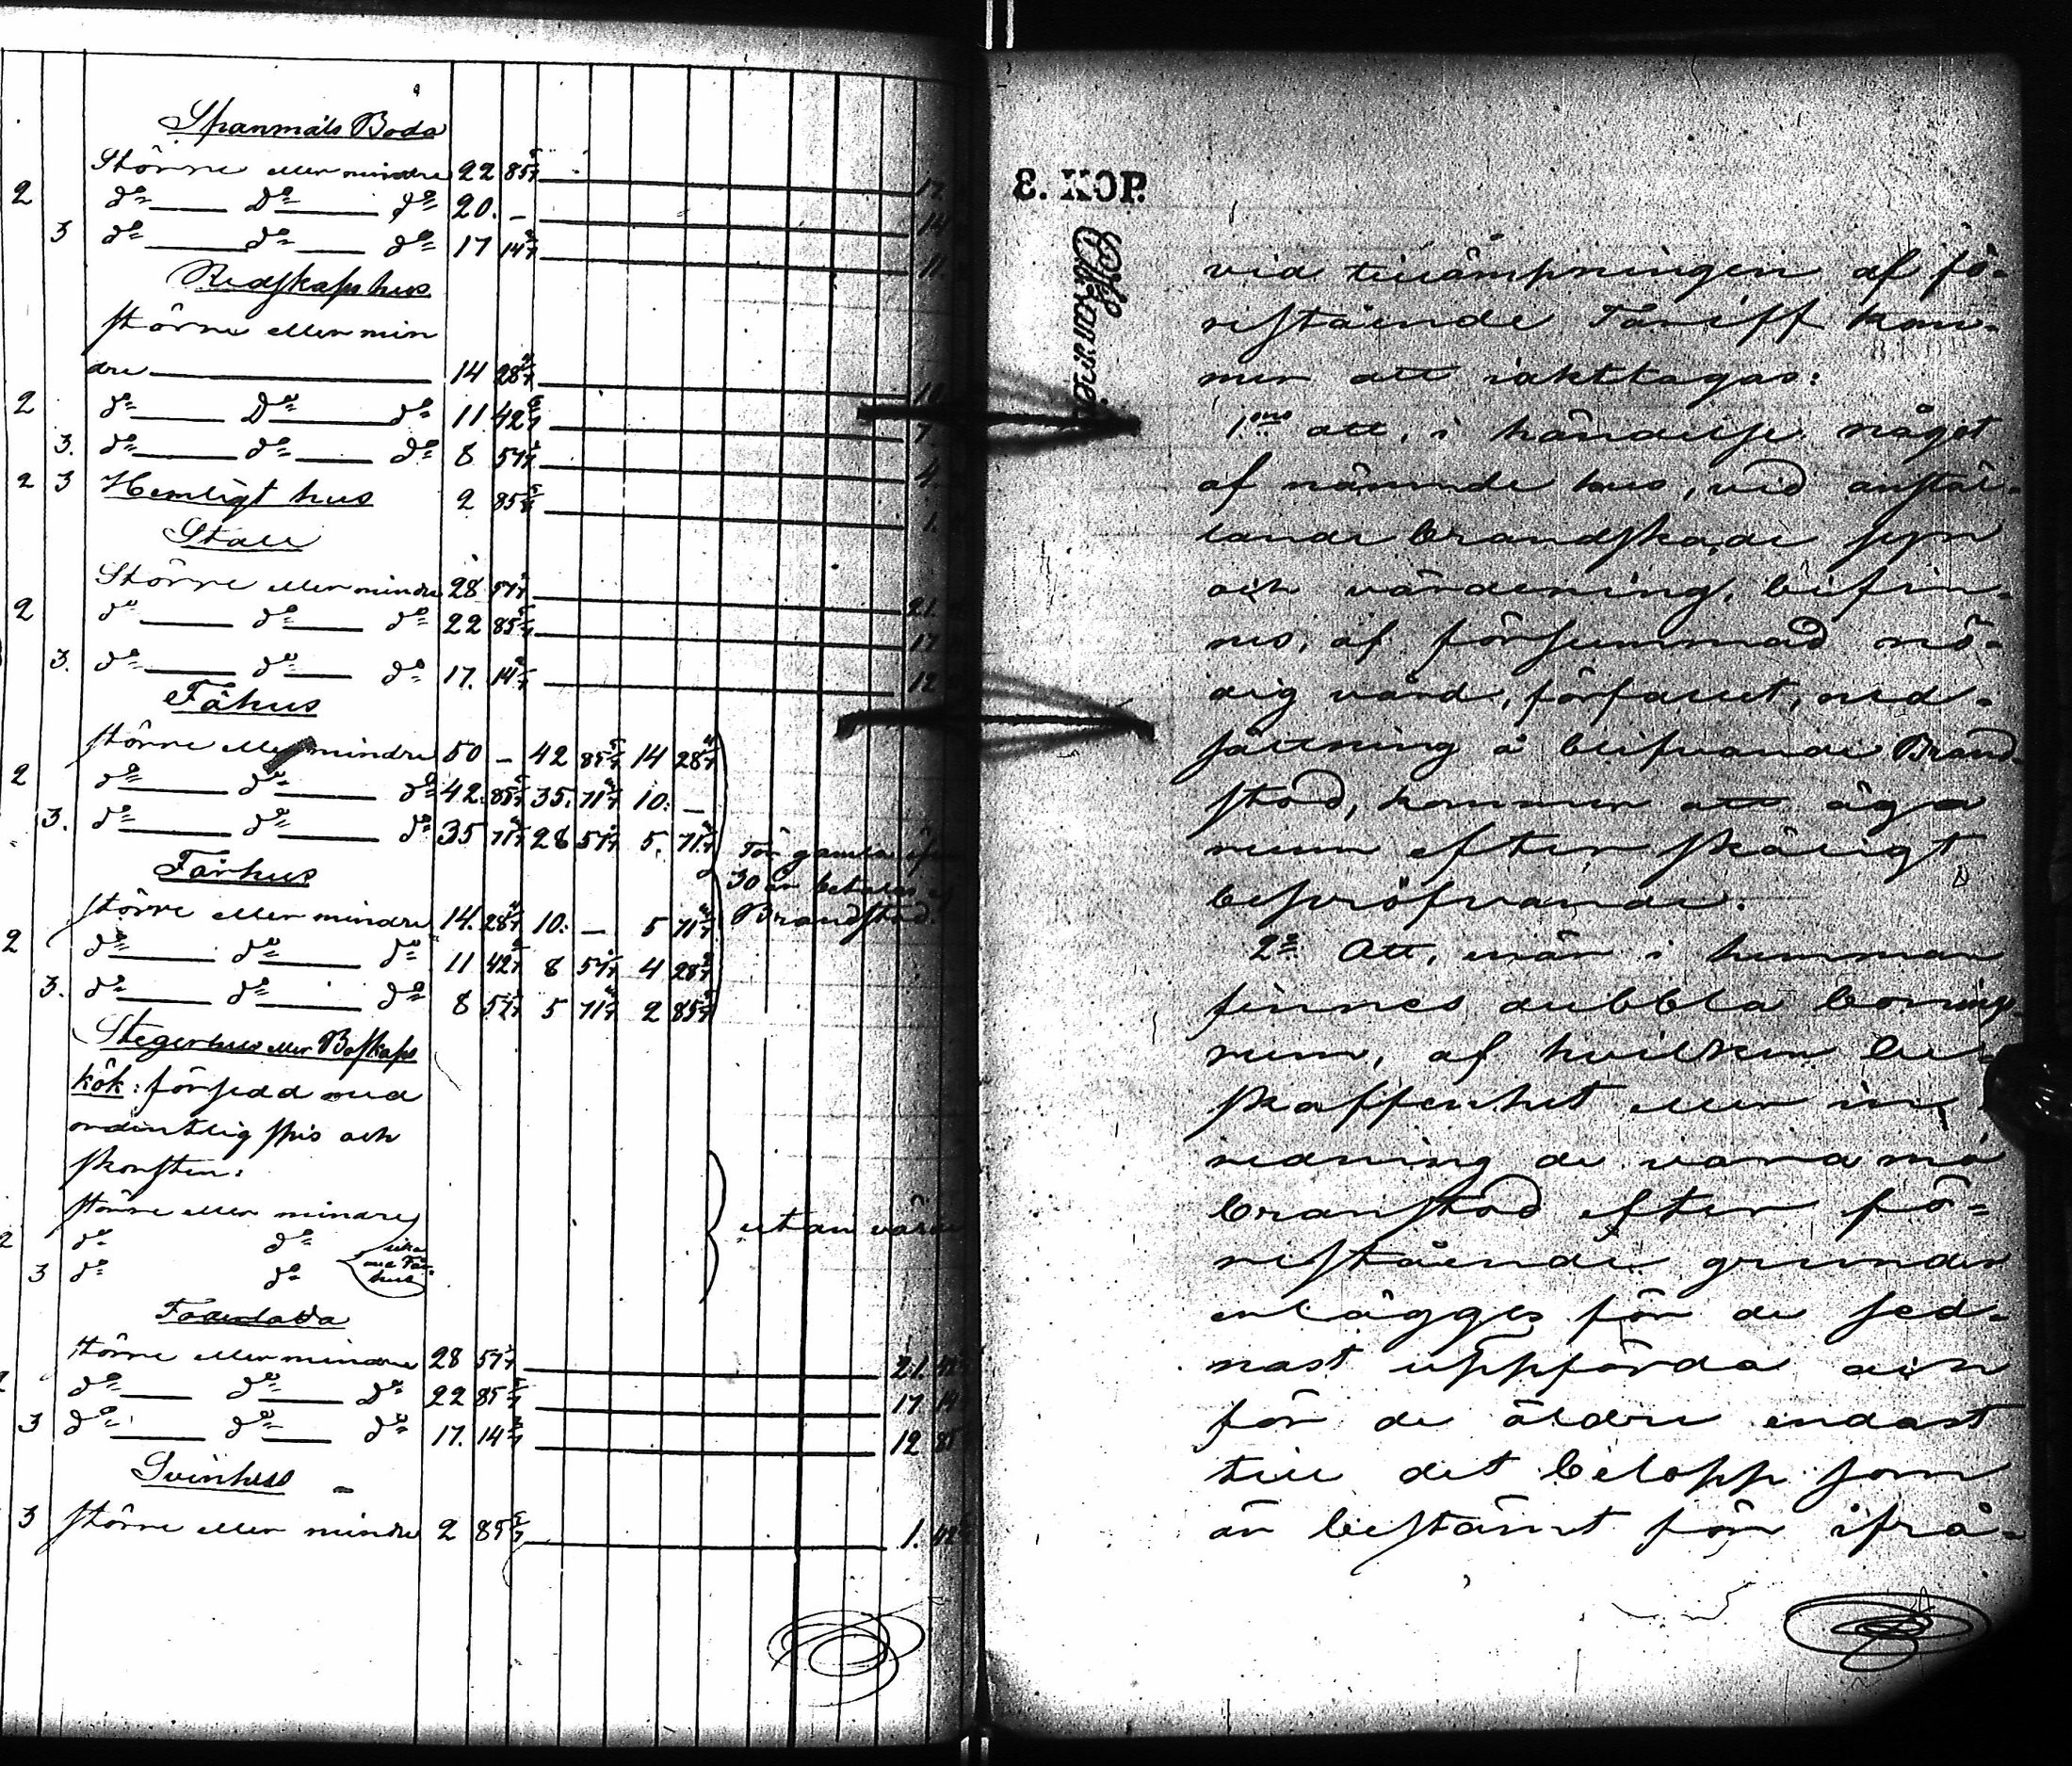 Spanmåls Boda
Större eller mindre 22 85 5/7 17.
2 do Do do 20. — 14
3 do do do 17 14 2/7 11.
Redskapshus
större eller min
dre 14 28 4/7 10
2 do Do do 11. 42 6/7 7.
3. do do do 8 57 1/7 4.
2 3 Hemligt hus 2 85 5/7 1.
Stall
Större eller mindre 28 57 1/7 21.
2 do do do 22 85 5/7 17
3. do do do 17. 14 2/7 12
Fähus
större eller mindre 50 — 42 85 5/7 14 28 4/7
2 do do do 42. 85 5/7 35. 71 3/7 10. —
3. do do do 35 71 3/7 28 57 1/7 5. 71 3/7
För gamla
30 år betalas
Brandstod.
Fårhus
större eller mindre 14. 28 4/7 10. — 5 71 3/7
2 do do do 11 42 6/7 8 57 1/7 4 28 4/7
3. do do do 8 57 1/7 5 71 3/7 2 85 5/7
Stegerhus eller Boskaps
kök: försedd med
ordentlig spis och
skorsten:
större eller mindre
2 do do
3 do do
utan
Foderlada
större eller mindre 28 57 1/7 21. 42
2 do do do 22 85 5/7 17 14
3 do do do 17. 14 2/7 12 85
Svinhus
3 större eller mindre 2 85 5/7 1. 42
3. KOP.
vid tillämpningen af fö-
restående Tariff kom-
mer att iakttagas:
1mo att, i händelse något
af nämnde hus, vid anstäl-
lande brandskade syn
och värdering, befin-
nes, af försummad nö-
dig vård, förfallet, ned-
sättning å blifvande Brand-
stod, kommer att äga
rum efter skäligt
bepröfvande.
2o Att, enär i hemman
finnes dubbla bonings
rum, af hvilken be-
skaffenhet eller in-
redning de vara må
branstod efter fö-
restående grunder
erlägges för de sed-
nast uppförda och
för de äldre endast
till det belopp som
är bestämt för ifrå-